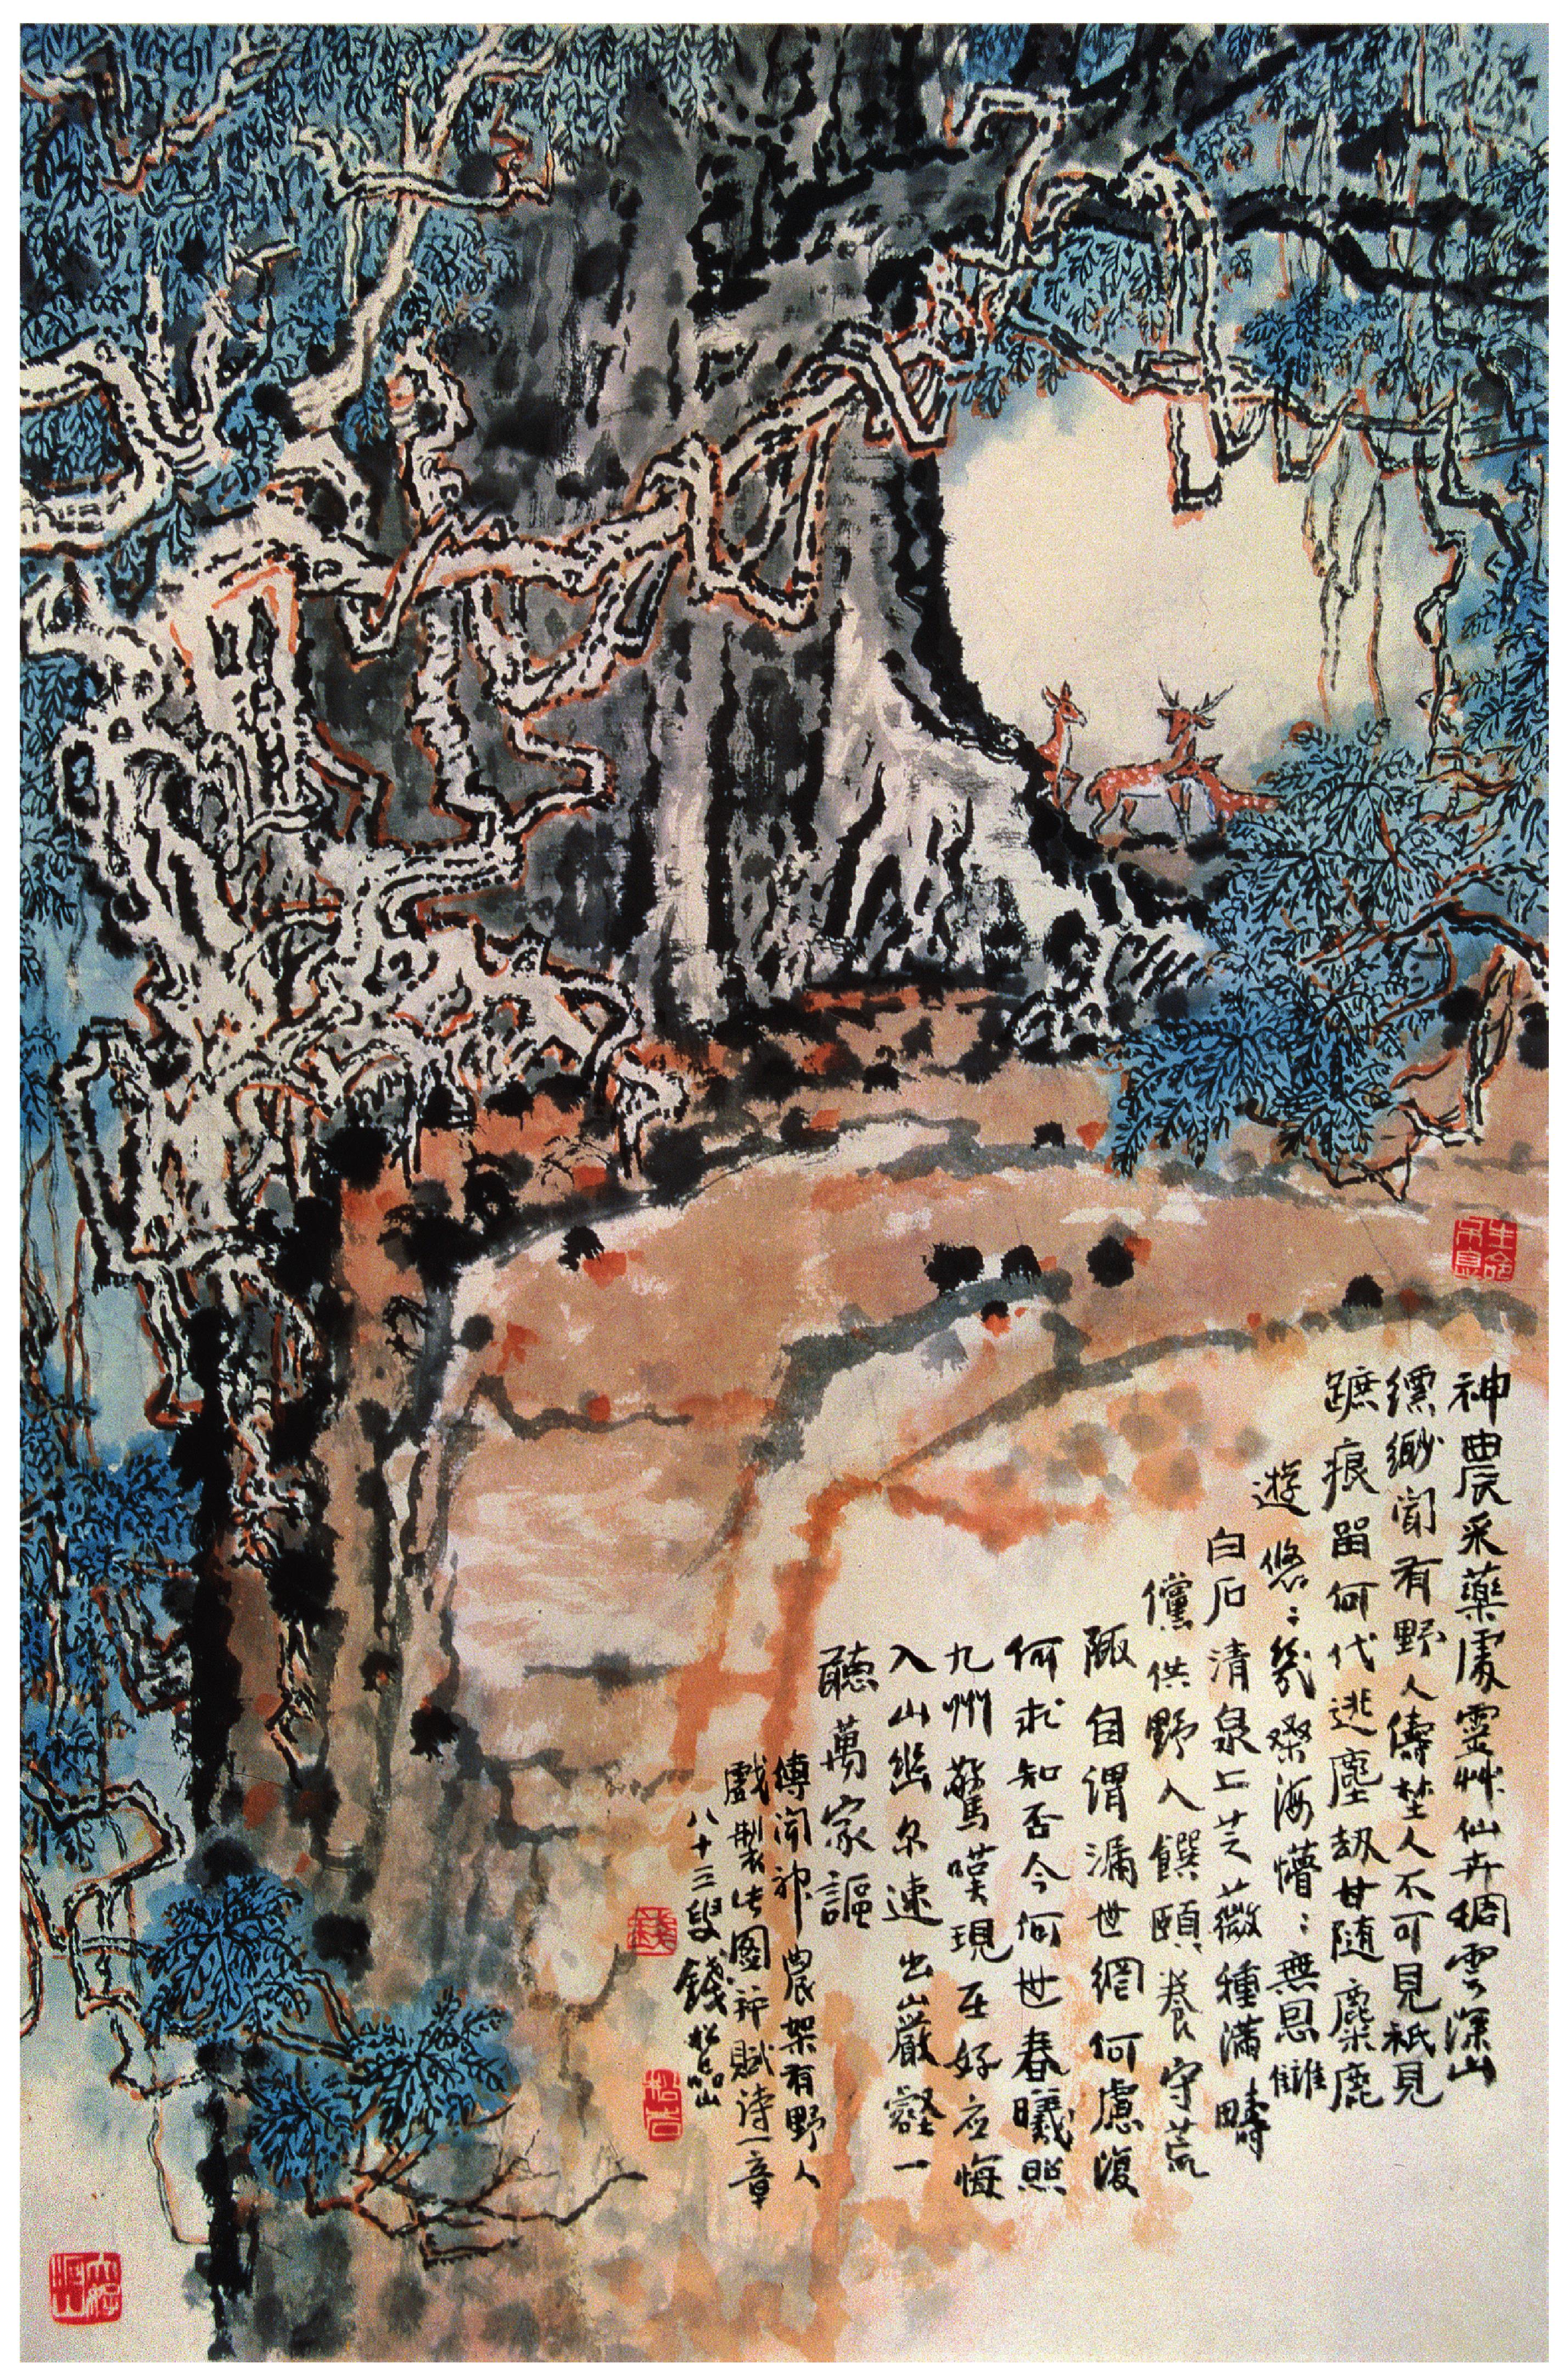 神農采藥處靈艸仙卉稠雲深山
縹緲聞有野人儔埜人不可見祇見
蹠痕留何代逃塵劫甘随麋鹿
遊悠〻幾桑海懵〻無恩讎
白石清泉上芝薇種滿疇
儻供野人饌頤養守荒
陬自謂漏世網何慮復
何求知否今何世春曦照
九州驚嘆現在好应悔
入山幽尔速出巖壑一
聽萬家謳
傳聞神農架有野人
戲製此圖并賦詩一章
八十三叟錢松喦
生命不息
錢
松喦
大好河山